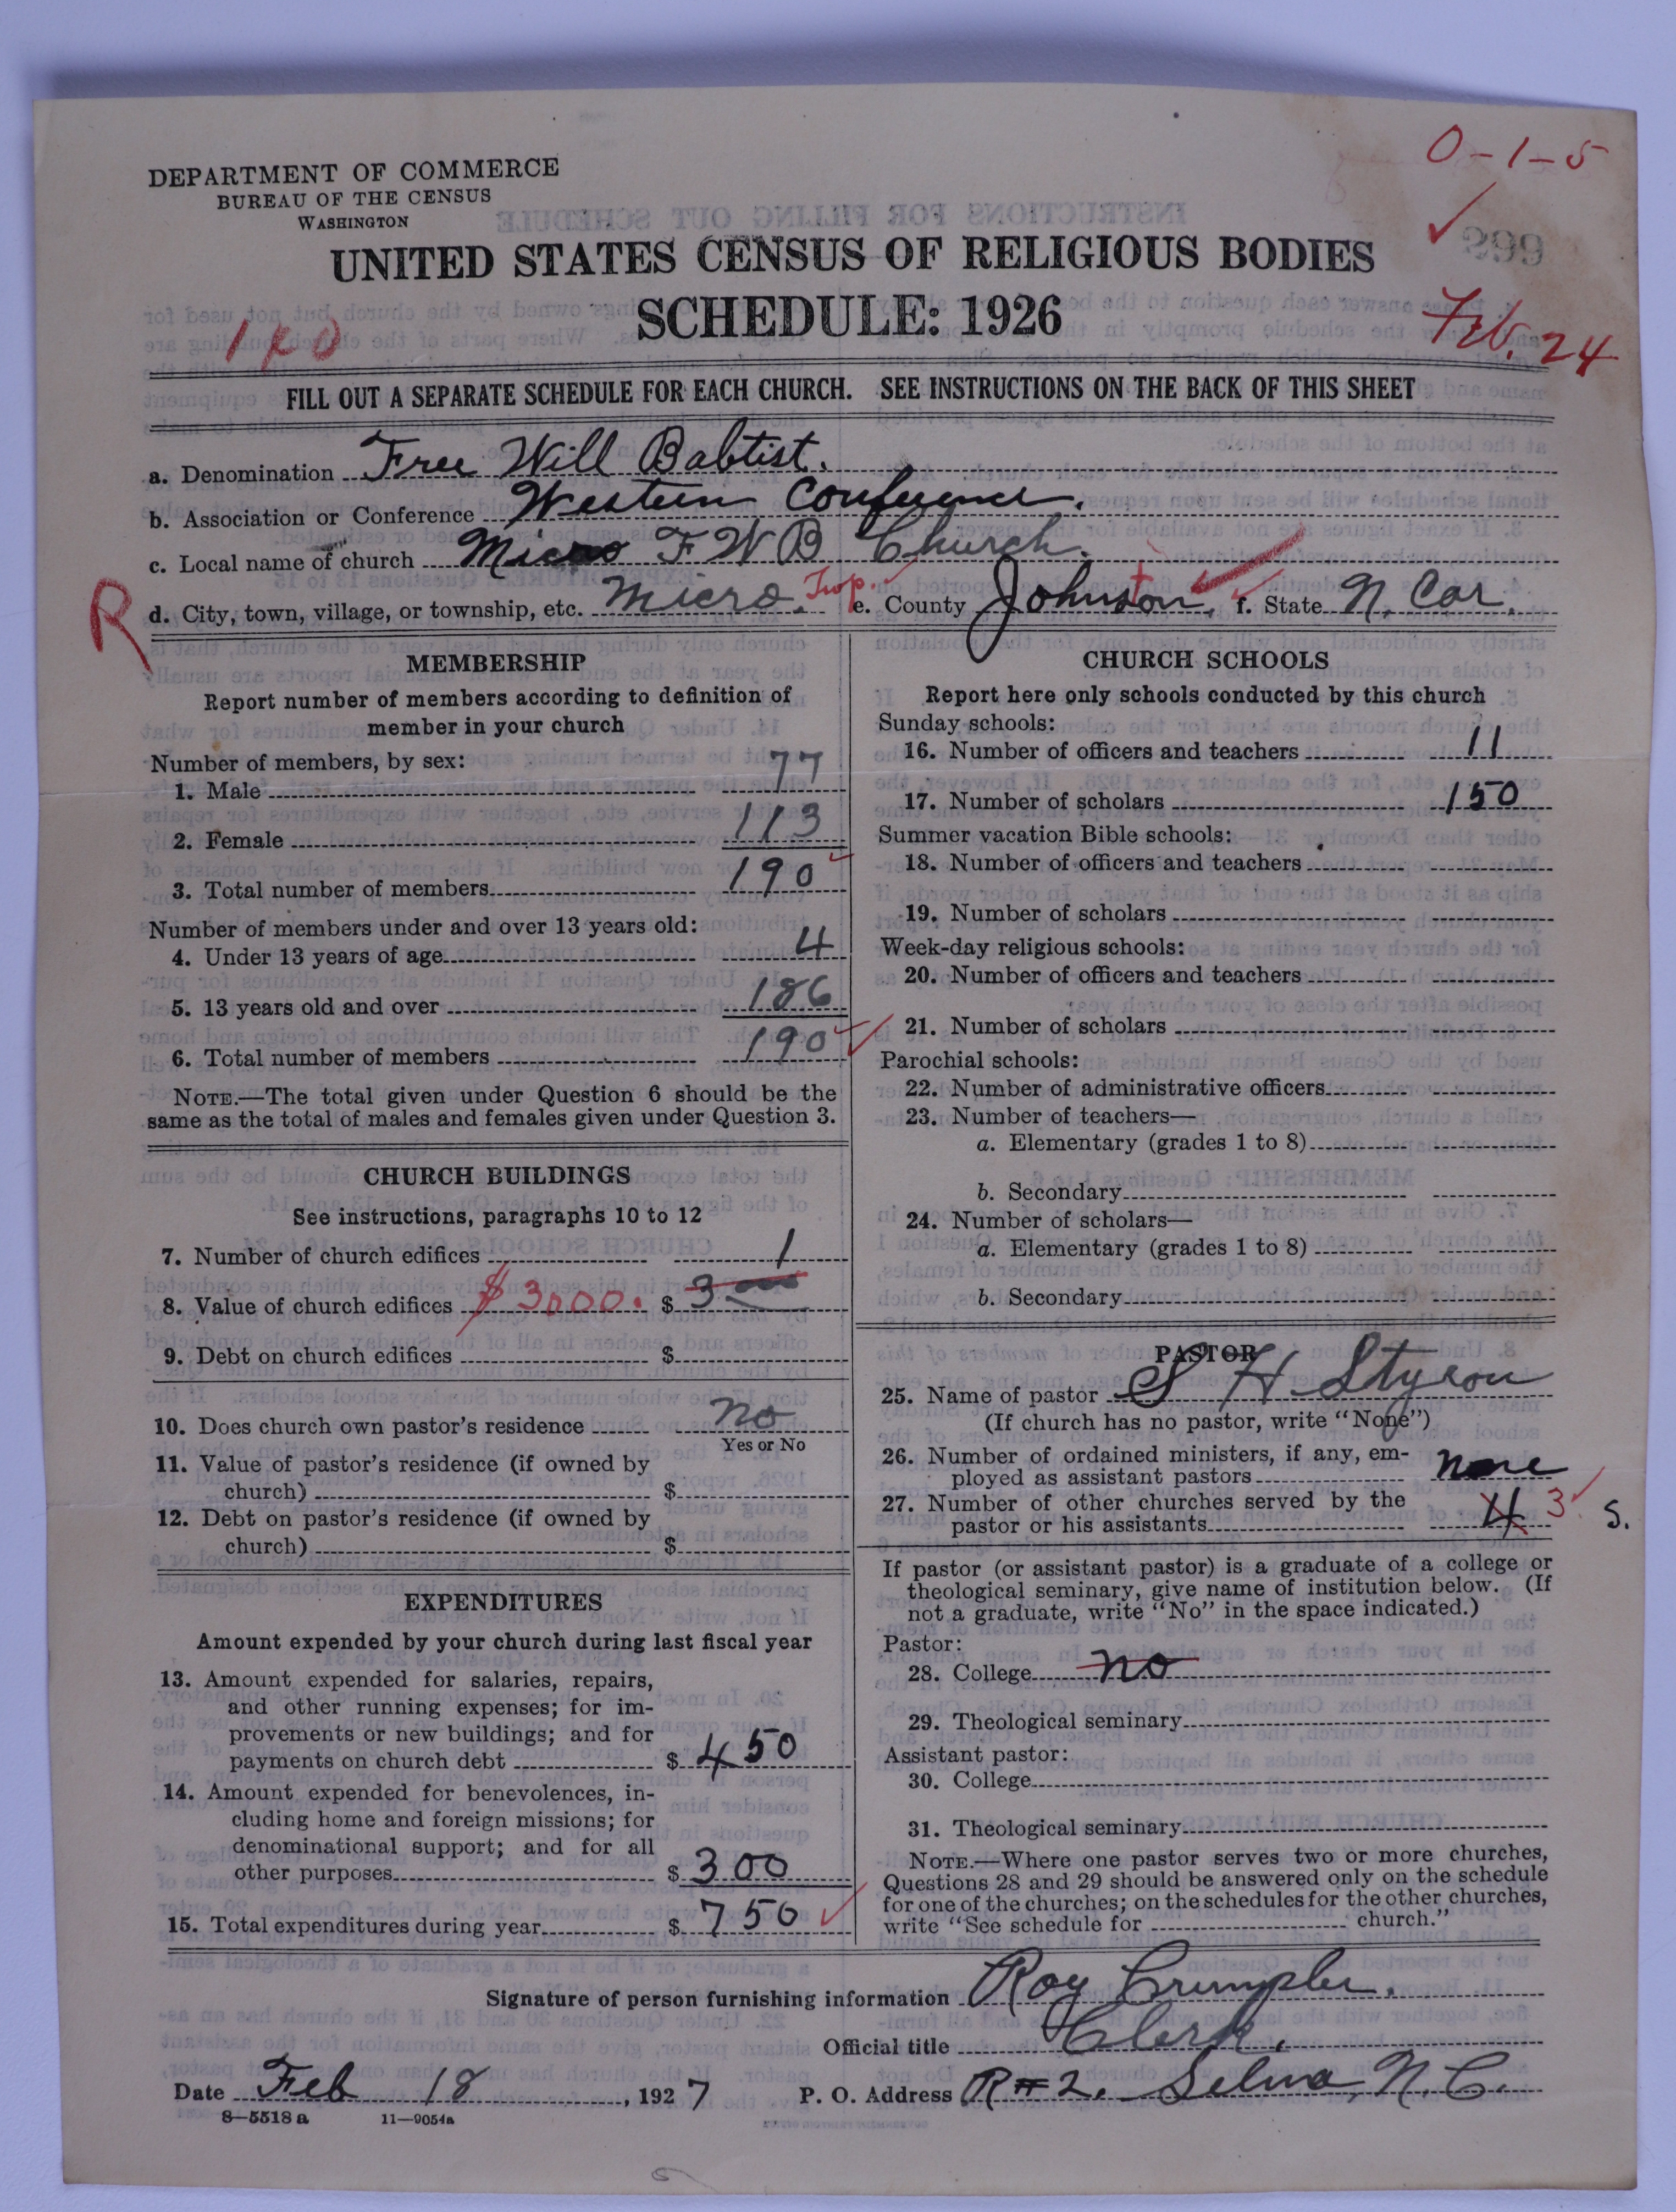 0-1-5
DEPARTMENT OF COMMERCE
BUREAU OF THE CENSUS
WASHINGTON
UNITED STATES CENSUS OF RELIGIOUS BODIES
SCHEDULE: 1926
Feb. 24
FILL OUT A SEPARATE SCHEDULE FOR EACH CHURCH. SEE INSTRUCTIONS ON THE BACK OF THIS SHEET
a. Denomination Free Will Babtist.
b. Association or Conference Western Conference.
c. Local name of church Micro F W B Church.
R d. City, town, village, or township, etc. Micro. Twp. e. County Johnston, f. State N. Car.
MEMBERSHIP
Report number of members according to definition of
member in your church
Number of members, by sex:
1. Male 77
2. Female 113
3. Total number of members 190
Number of members under and over 13 years old:
4. Under 13 years of age 4
5. 13 years old and over 186
6. Total number of members 190
NOTE.—The total given under Question 6 should be the
same as the total of males and females given under Question 3.
CHURCH BUILDINGS
See instructions, paragraphs 10 to 12
7. Number of church edifices 1
8. Value of church edifices $3000. $ 3
9. Debt on church edifices $
10. Does church own pastor's residence no
Yes or No
11. Value of pastor's residence (if owned by
church) $
12. Debt on pastor's residence (if owned by
church) $
EXPENDITURES
Amount expended by your church during last fiscal year
13. Amount expended for salaries, repairs,
and other running expenses; for im-
provements or new buildings; and for
payments on church debt $ 450
14. Amount expended for benevolences, in-
cluding home and foreign missions; for
denominational support; and for all
other purposes $ 300
15. Total expenditures during year $ 750
CHURCH SCHOOLS
Report here only schools conducted by this church
Sunday schools:
16. Number of officers and teachers 11
17. Number of scholars 150
Summer vacation Bible schools:
18. Number of officers and teachers
19. Number of scholars
Week-day religious schools:
20. Number of officers and teachers
21. Number of scholars
Parochial schools:
22. Number of administrative officers
23. Number of teachers—
a. Elementary (grades 1 to 8)
b. Secondary
24. Number of scholars—
a. Elementary (grades 1 to 8)
b. Secondary
PASTOR
25. Name of pastor S H Styron
(If church has no pastor, write "None")
26. Number of ordained ministers, if any, em-
ployed as assistant pastors none
27. Number of other churches served by the
pastor or his assistants 4 3 S.
If pastor (or assistant pastor) is a graduate of a college or
theological seminary, give name of institution below. (If
not a graduate, write "No" in the space indicated.)
Pastor:
28. College no
29. Theological seminary
Assistant pastor:
30. College
31. Theological seminary
NOTE.—Where one pastor serves two or more churches,
Questions 28 and 29 should be answered only on the schedule
for one of the churches; on the schedules for the other churches,
write "See schedule for church."
Signature of person furnishing information Roy Crumpler.
Official title Clerk.
Date Feb 18, 1927 P. O. Address R#2. Selma, N.C.
8—5518 a 11—9054a